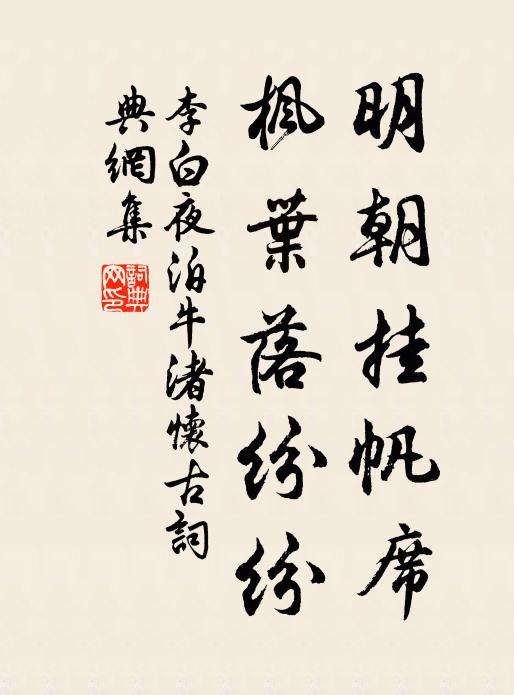 明朝挂帆席
楓葉落紛紛
李白夜泊牛渚懷古詞
典網集
詞典
网印